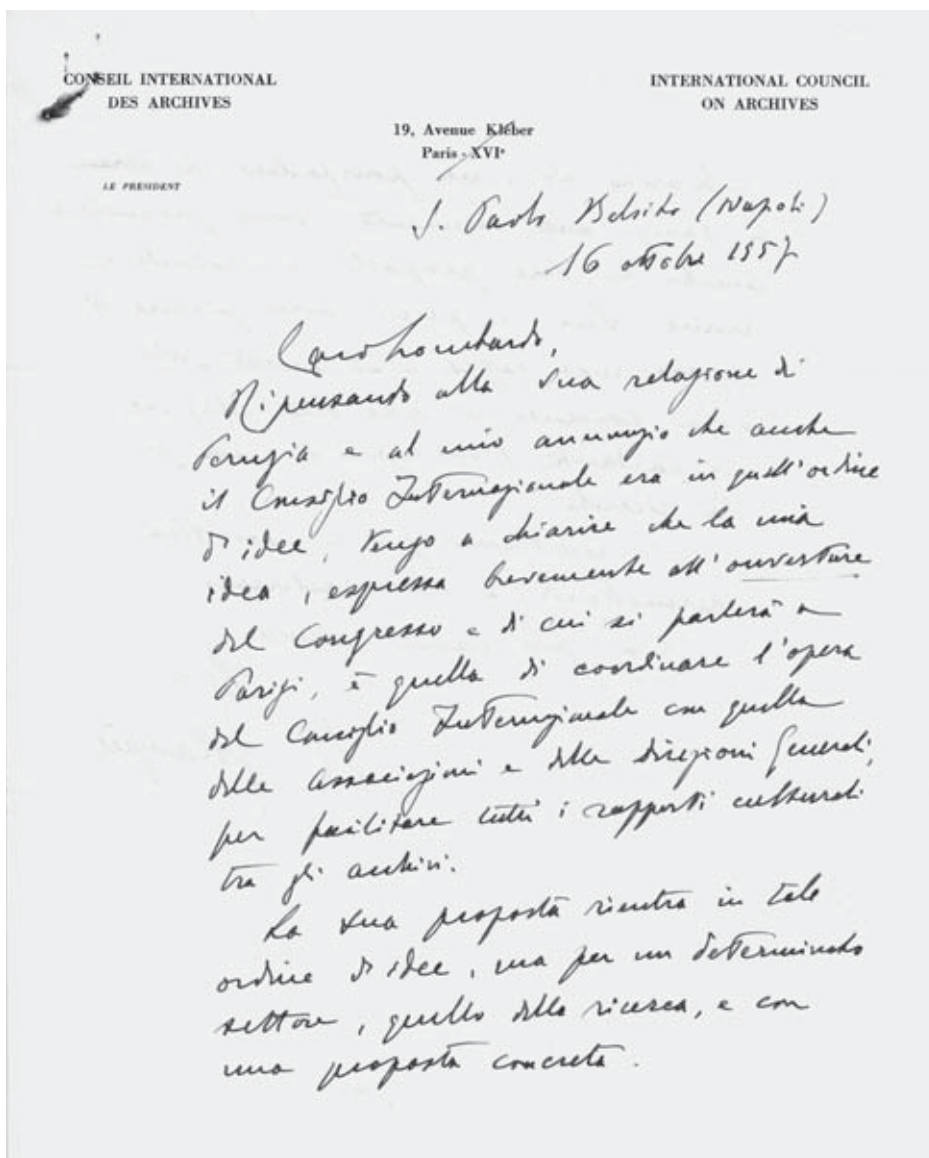 CONSEIL INTERNATIONAL
DES ARCHIVES
INTERNATIONAL COUNCIL
ON ARCHIVES
19, Avenue Kléber
Paris - XVIᵉ
LE PRESIDENT
S. Paolo Belsito (Napoli)
16 ottobre 1957
Caro Lombardo,
Ripensando alla Sua relazione di
Perugia e al mio annunzio che anche
il Consiglio Internazionale era in quell'ordine
di idee, tengo a chiarire che la mia
idea, espressa brevemente all'ouverture
del Congresso e di cui si parlerà a
Parigi, è quella di coordinare l'opera
del Consiglio Internazionale con quella
delle associazioni e delle direzioni Generali,
per facilitare tutti i rapporti culturali
tra gli archivi.
La sua proposta rientra in tale
ordine di idee, ma per un determinato
settore, quello della ricerca, e con
una proposta concreta.